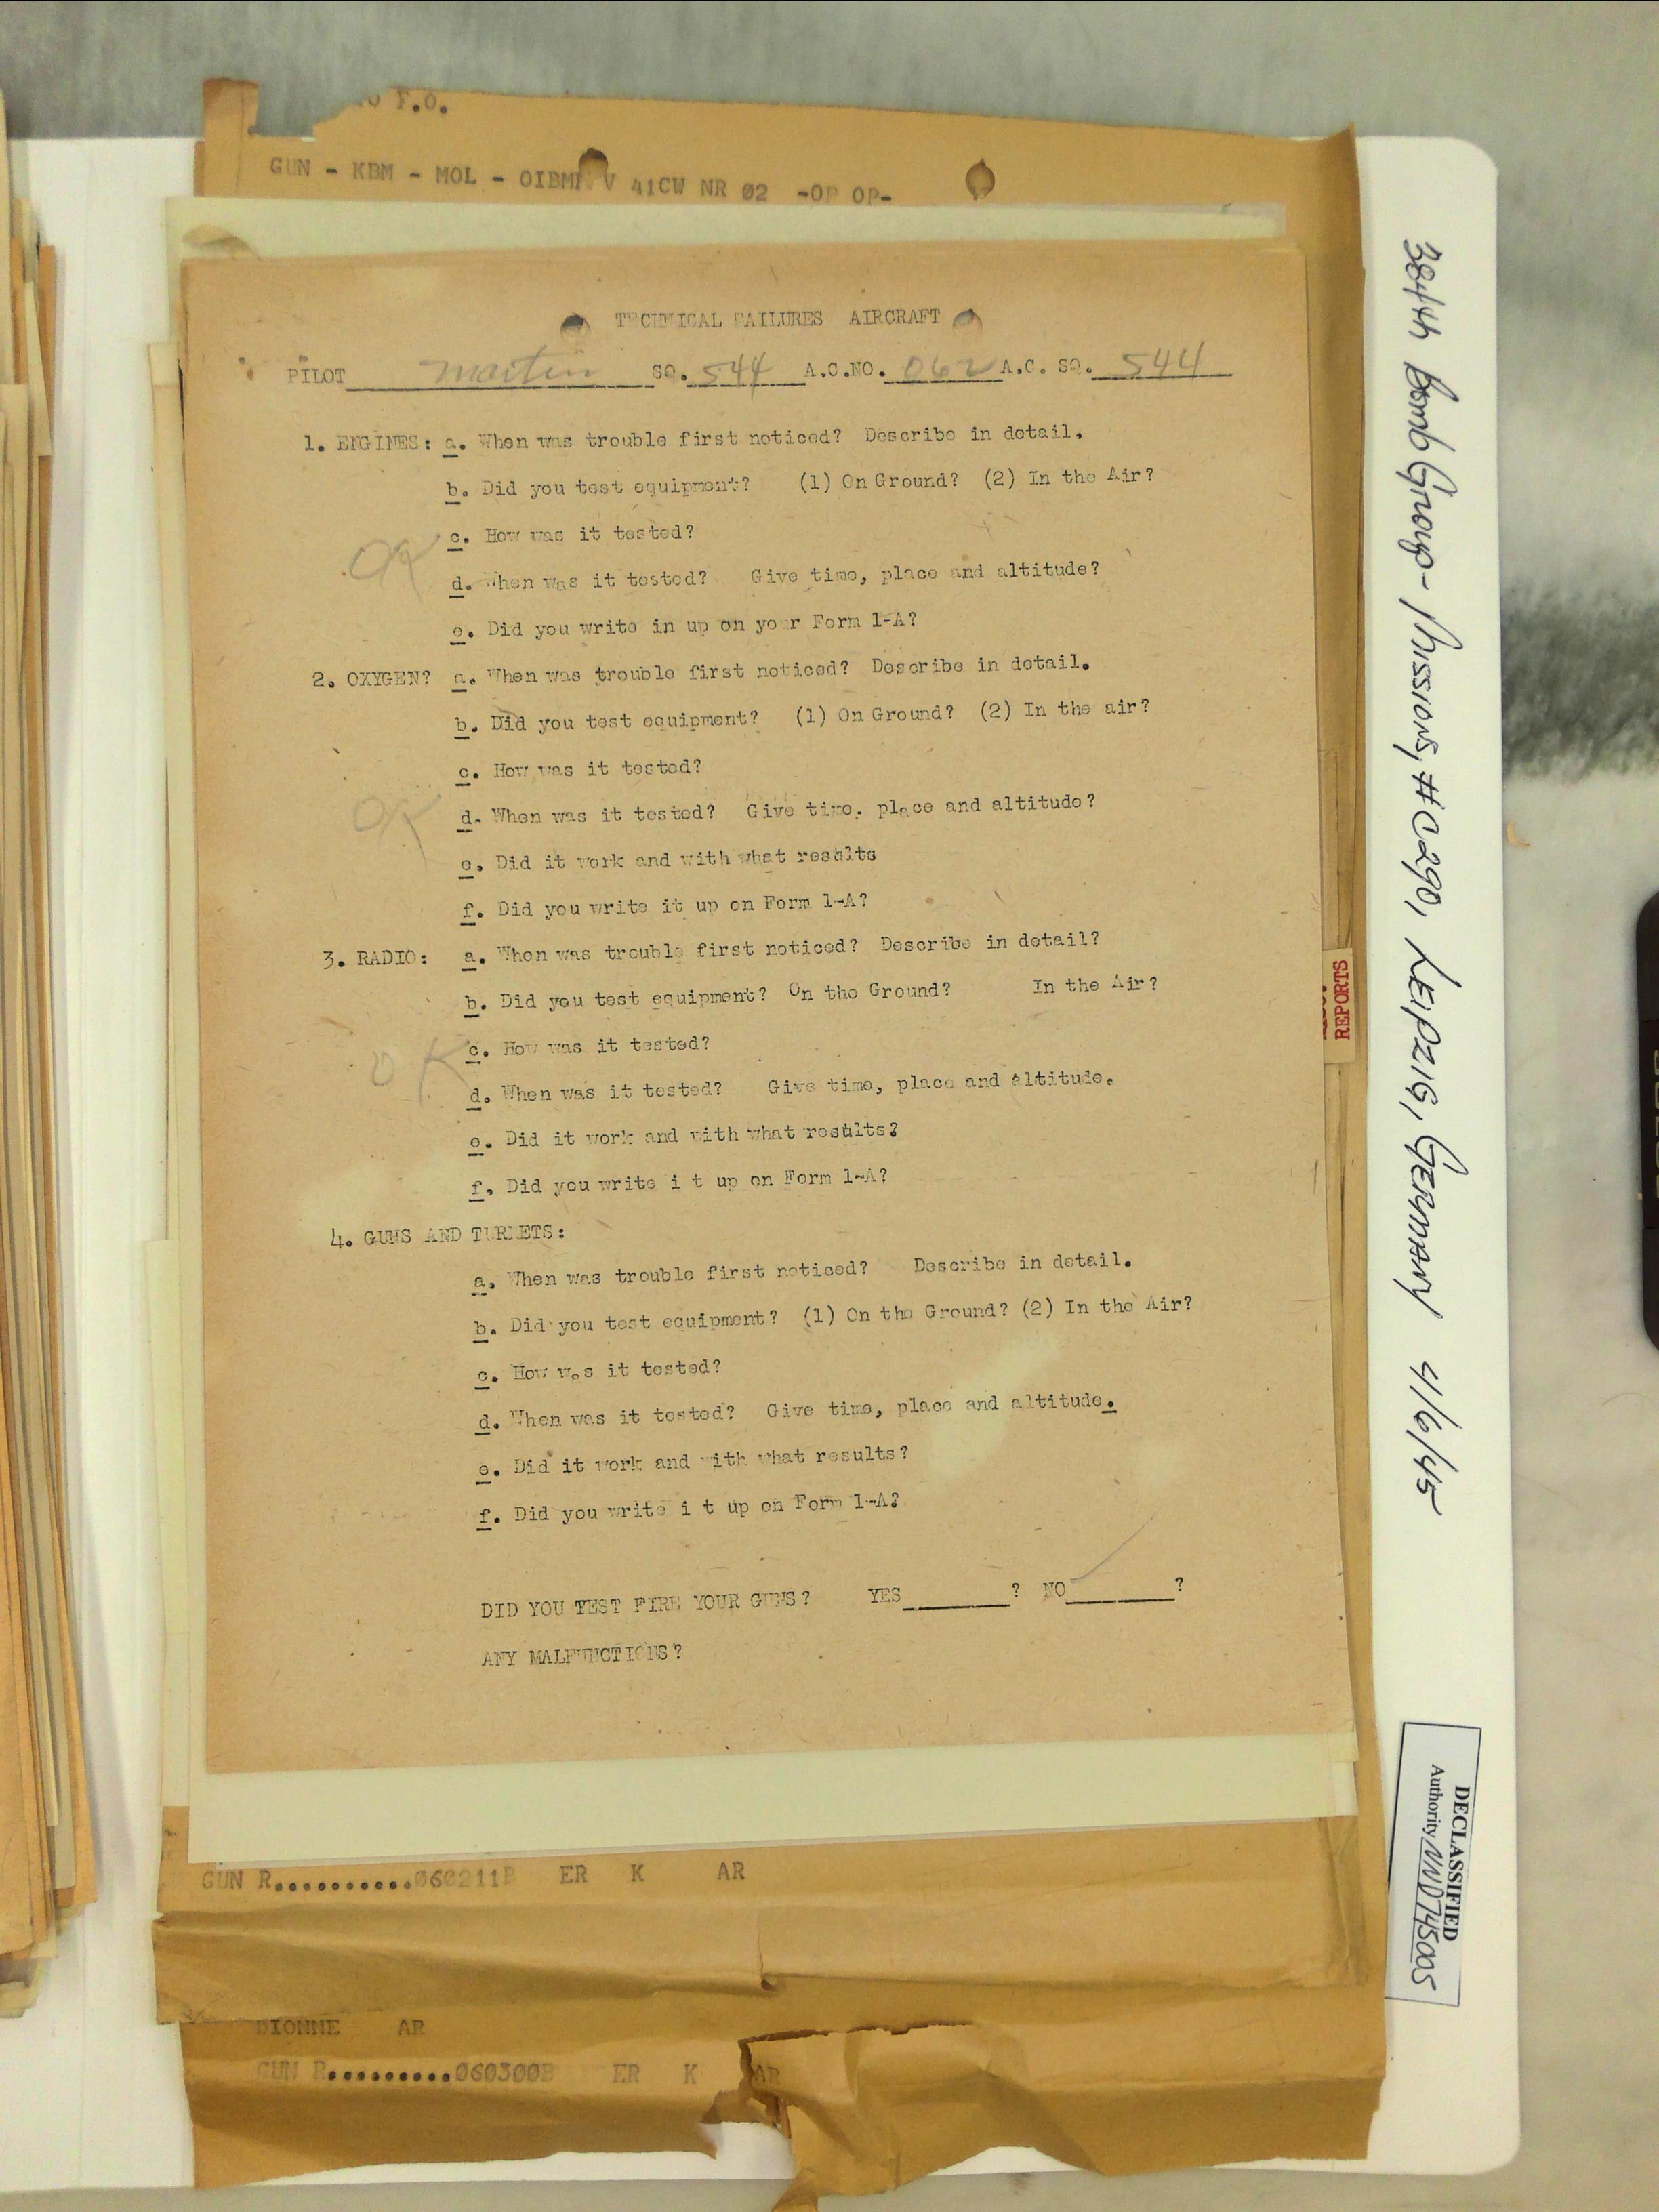 F.O.
GUN - KBM - MOL - V 41CW NR 02 -OP OP-
TECHNICAL FAILURES AIRCRAFT
PILOT Martin SQ. 544 A.C.NO. 062 A.C. SQ. 544
1. ENGINES: a. When was trouble first noticed? Describe in detail.
b. Did you test equipment? (1) On Ground? (2) In the Air?
c. How was it tested?
OK
d. When was it tested? Give time, place and altitude?
e. Did you write in up on your Form 1-A?
2. OXYGEN? a. When was trouble first noticed? Describe in detail.
b. Did you test equipment? (1) On Ground? (2) In the air?
c. How was it tested?
OK
d. When was it tested? Give time. place and altitude?
e. Did it work and with what results
f. Did you write it up on Form 1-A?
3. RADIO: a. When was trouble first noticed? Describe in detail?
b. Did you test equipment? On the Ground? In the Air?
c. How was it tested?
OK
d. When was it tested? Give time, place and altitude.
e. Did it work and with what results?
f. Did you write i t up on Form 1-A?
4. GUNS AND TURRETS:
a. When was trouble first noticed? Describe in detail.
b. Did you test equipment? (1) On the Ground? (2) In the Air?
c. How was it tested?
d. When was it tested? Give time, place and altitude.
e. Did it work and with what results?
f. Did you write i t up on Form 1-A?
DID YOU TEST FIRE YOUR GUNS? YES________? NO________?
ANY MALFUNCTIONS?
GUN R..........060211B ER K AR
DIONNE AR
GUN R.........060300B ER K AR
REPORTS
384th Bomb Group - Missions, #0290, LEIPZIG, GERMANY 4/6/45
DECLASSIFIED
Authority NND745005